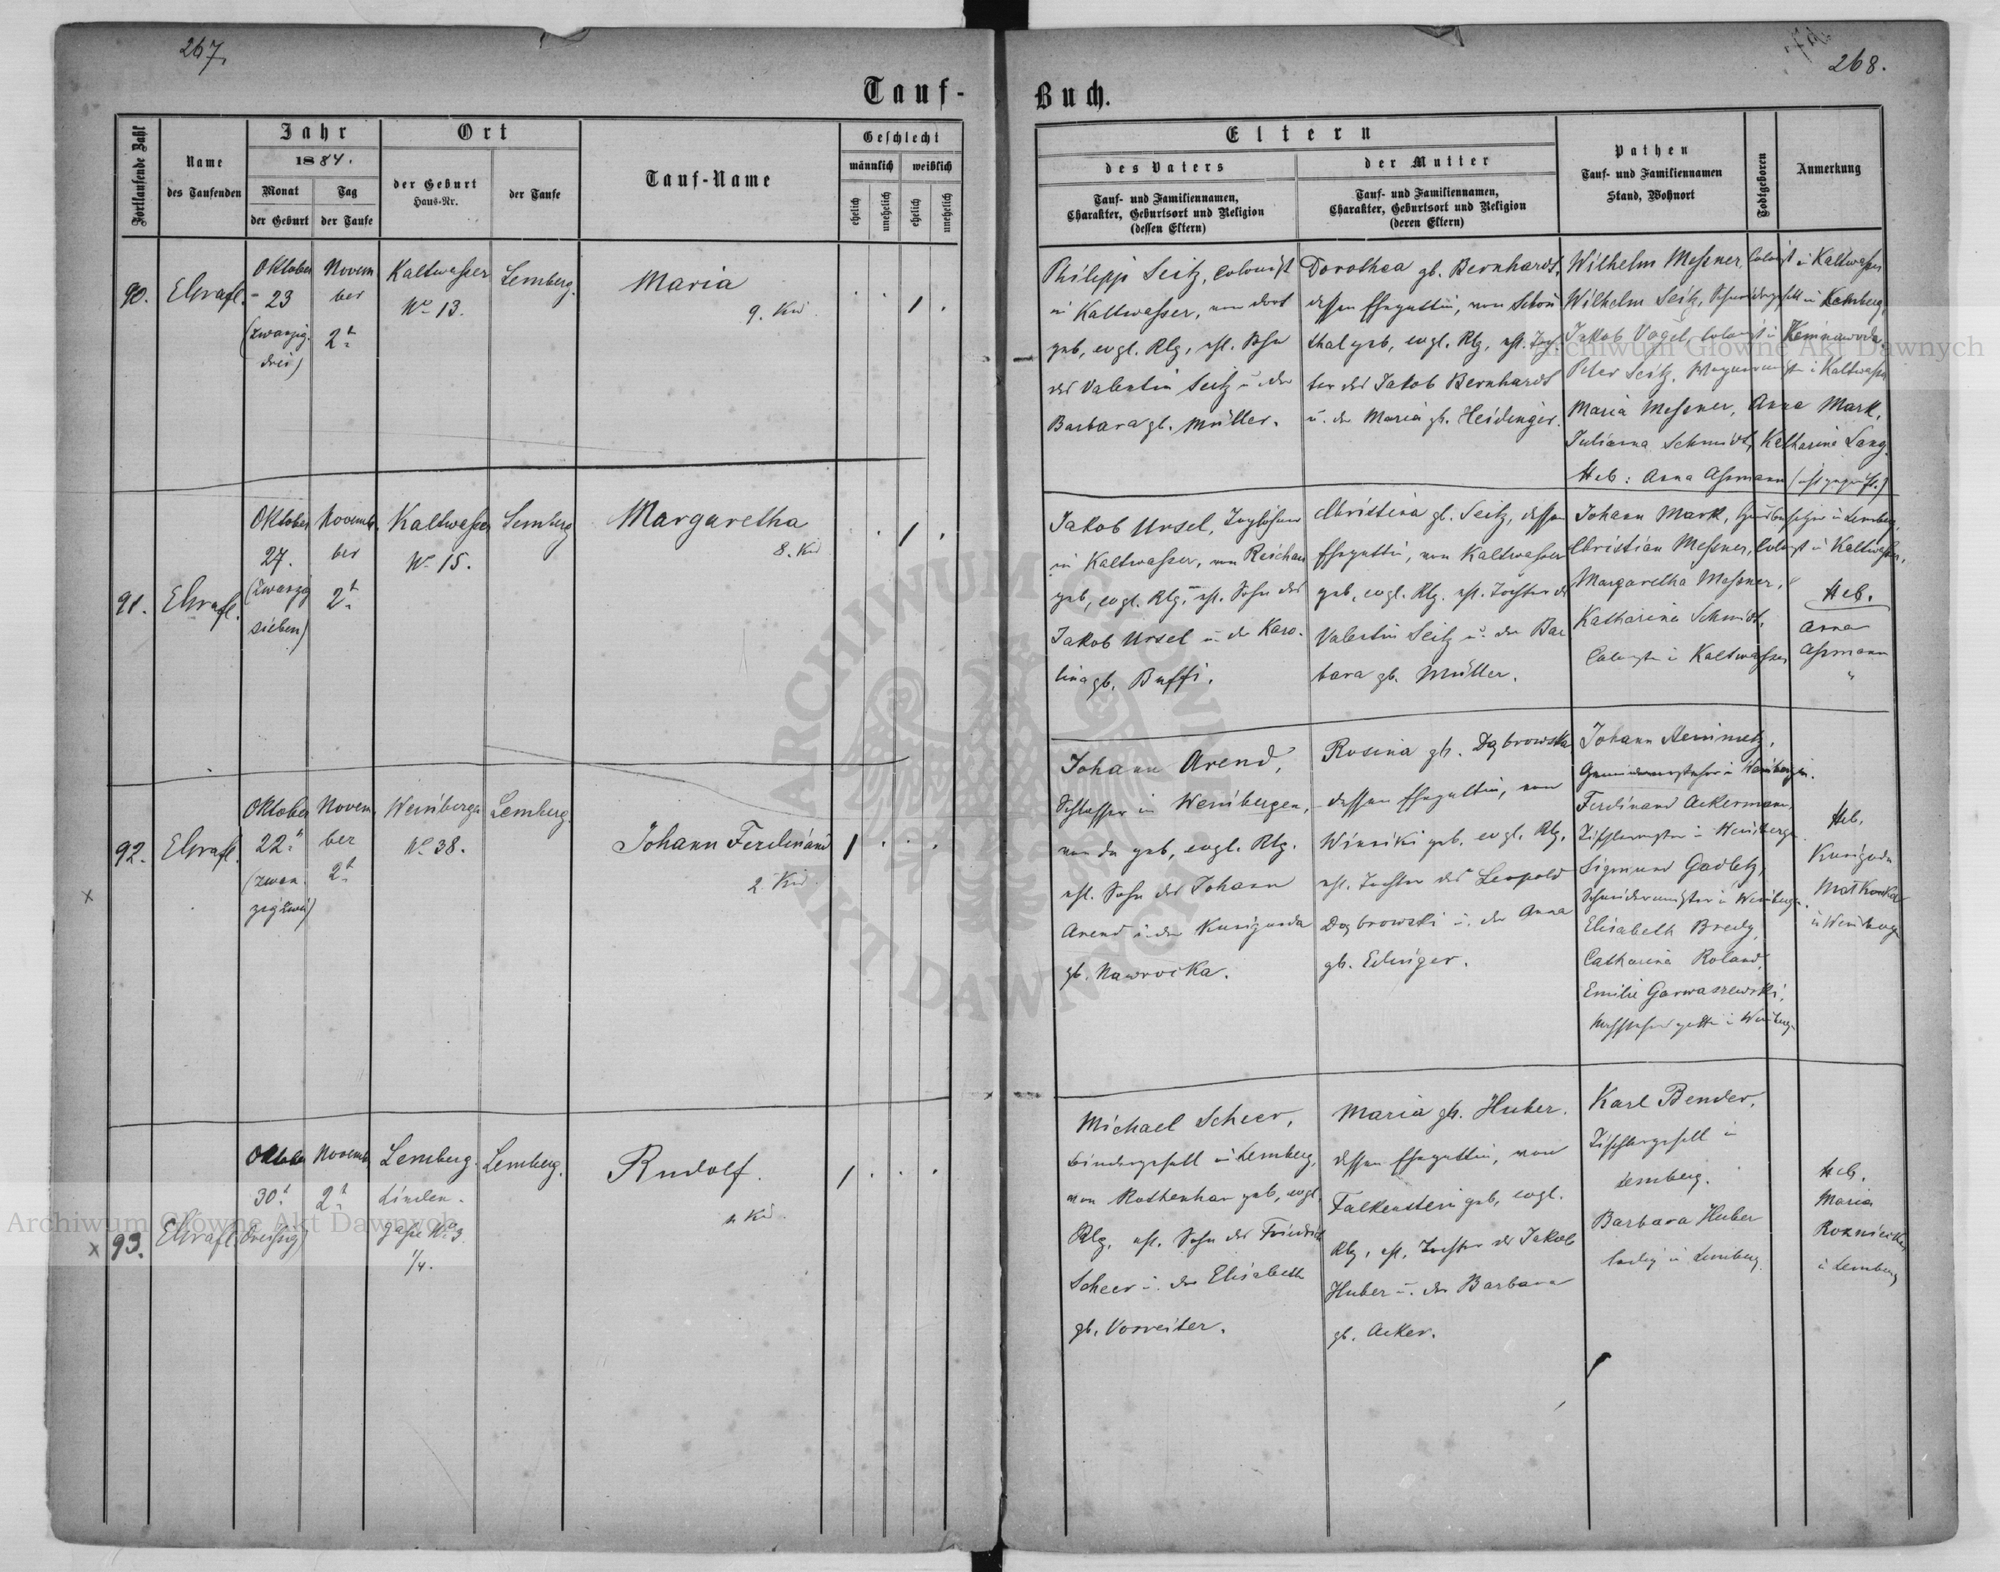 267.
268.
Tauf-
Buch.
Fortlaufende Zahl
Name
des Taufenden
Jahr
1884.
Monat
der Geburt
Tag
der Taufe
Ort
der Geburt
Haus-Nr.
der Taufe
Tauf-Name
Geschlecht
männlich
weiblich
ehelich
unehelich
ehelich
unehelich
Eltern
des Vaters
Tauf- und Familiennamen,
Charakter, Geburtsort und Religion
(dessen Eltern)
der Mutter
Tauf- und Familiennamen,
Charakter, Geburtsort und Religion
(deren Eltern)
Pathen
Tauf- und Familiennamen
Stand, Wohnort
Todtgeboren
Anmerkung
90.
Oktober
23
(zwanzig
drei)
Novem
ber
2t
Kaltwasser
No 13.
Lemberg.
Maria
9. Kid.
1
Philipp Seitz, Colonist
in Kaltwasser, von dort
geb, evgl. Rlg, ehl. Sohn
des Valentin Seitz u. der
Barbara gb. Müller.
Dorothea gb. Bernhardt,
dessen Ehegattin, von Schön
thal geb, evgl. Rlg, ehl. Toch
ter des Jakob Bernhardt
u. der Maria gb. Heidinger.
Wilhelm Messner, Colonist in Kaltwasser
Wilhelm Seitz, in Lemberg,
Jakob Vogel,
Peter Seitz, in Kaltwasser
Maria Messner, Anna Mark,
Julianna Schmidt, Katharina Lang.
Heb: Anna Assmann
91.
Oktober
27.
(zwanzig
sieben)
Novem
ber
2t
Kaltwasser
No 15.
Lemberg
Margaretha
8. Kid
1
Jakob Ursel, Taglöhner
in Kaltwasser, von Reichau
geb, evgl. Rlg, ehl. Sohn des
Jakob Ursel u. der Karo-
lina gb. Buffi.
Christina gb. Seitz, dessen
Ehegattin, von Kaltwasser
geb, evgl. Rlg. ehl. Tochter des
Valentin Seitz u. der Bar
bara gb. Müller.
Johann Mark, in Lemberg,
Christian Messner, Colonist in Kaltwasser,
Margaretha Messner,
Katharina Schmidt,
in Kaltwasser
Heb.
Anna
Assmann
92.
x
Oktober
22t
(zwan
zig zwei)
Novem
ber
2t
Weinbergen
No 38.
Lemberg.
Johann Ferdinand
2. Kid.
1
Johann Arend,
Schlosser in Weinbergen,
von da geb, evgl. Rlg.
ehl. Sohn des Johann
Arend u. der Kunigunda
gb. Nawrocka.
Rosina gb. Dąbrowska
dessen Ehegattin, von
Winniki geb. evgl. Rlg,
ehl. Tochter des Leopold
Dąbrowski u. der Anna
gb. Edinger.
Johann Heinmetz,
Ferdinand Ackermann,
Tischlermeister in Weinbergen
Sigmund Gadletz,
Schneidermeister in Weinbergen,
Elisabeth Bredy,
Catharina Roland,
Emilie Garwaszewski,
Heb.
Kunigunda
in Weinberge
93.
x
Oktober
30t
dreissig)
Novemb
2t
Lemberg.
Linden-
gasse No 3
1/4.
Lemberg.
Rudolf.
1
Michael Scheer,
Bindergesell in Lemberg,
von Rothenhan geb, evgl.
Rlg, ehl. Sohn des Friedrich
Scheer u. der Elisabeth
gb. Vorreiter.
Maria gb. Huber.
dessen Ehegattin, von
Falkenstein geb, evgl.
Rlg, ehl, Tochter des Jakob
Huber u. der Barbara
gb. Acker.
Karl Bender,
Tischlergesell in
Lemberg.
Barbara Huber
ledig in Lemberg.
Heb.
Maria
in Lemberg
Archiwum Główne Akt Dawnych
Archiwum Główne Akt Dawnych
ARCHIWUM GŁÓWNE
AKT DAWNYCH